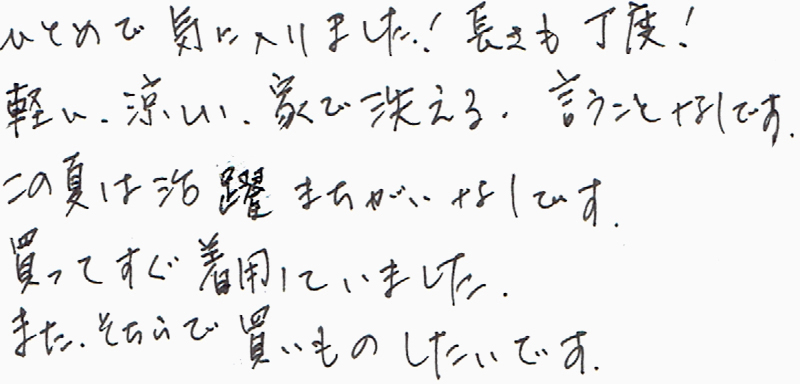 ひとめで気に入りました！長さも丁度！
軽い、涼しい、家で洗える、言うことなしです。
この夏は活躍まちがいなしです。
買ってすぐ着用していました。
また、そちらで買いものしたいです。